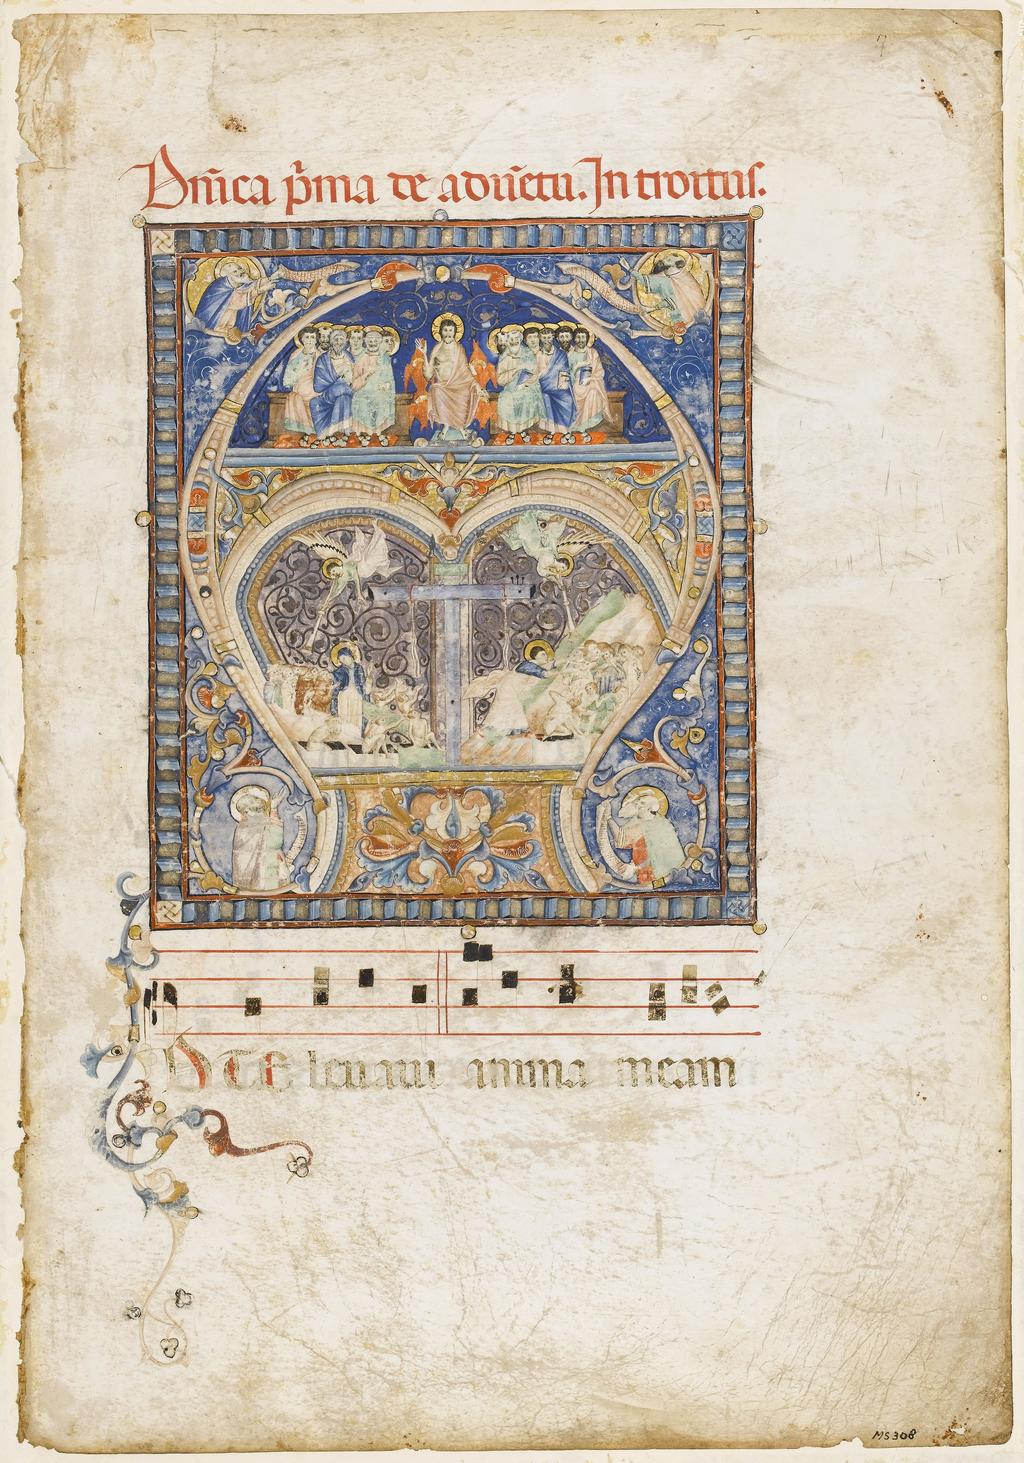 Dn̄ica p̄ma de aduētu. Introitus.
D TE leuaui anima meam
MS 308